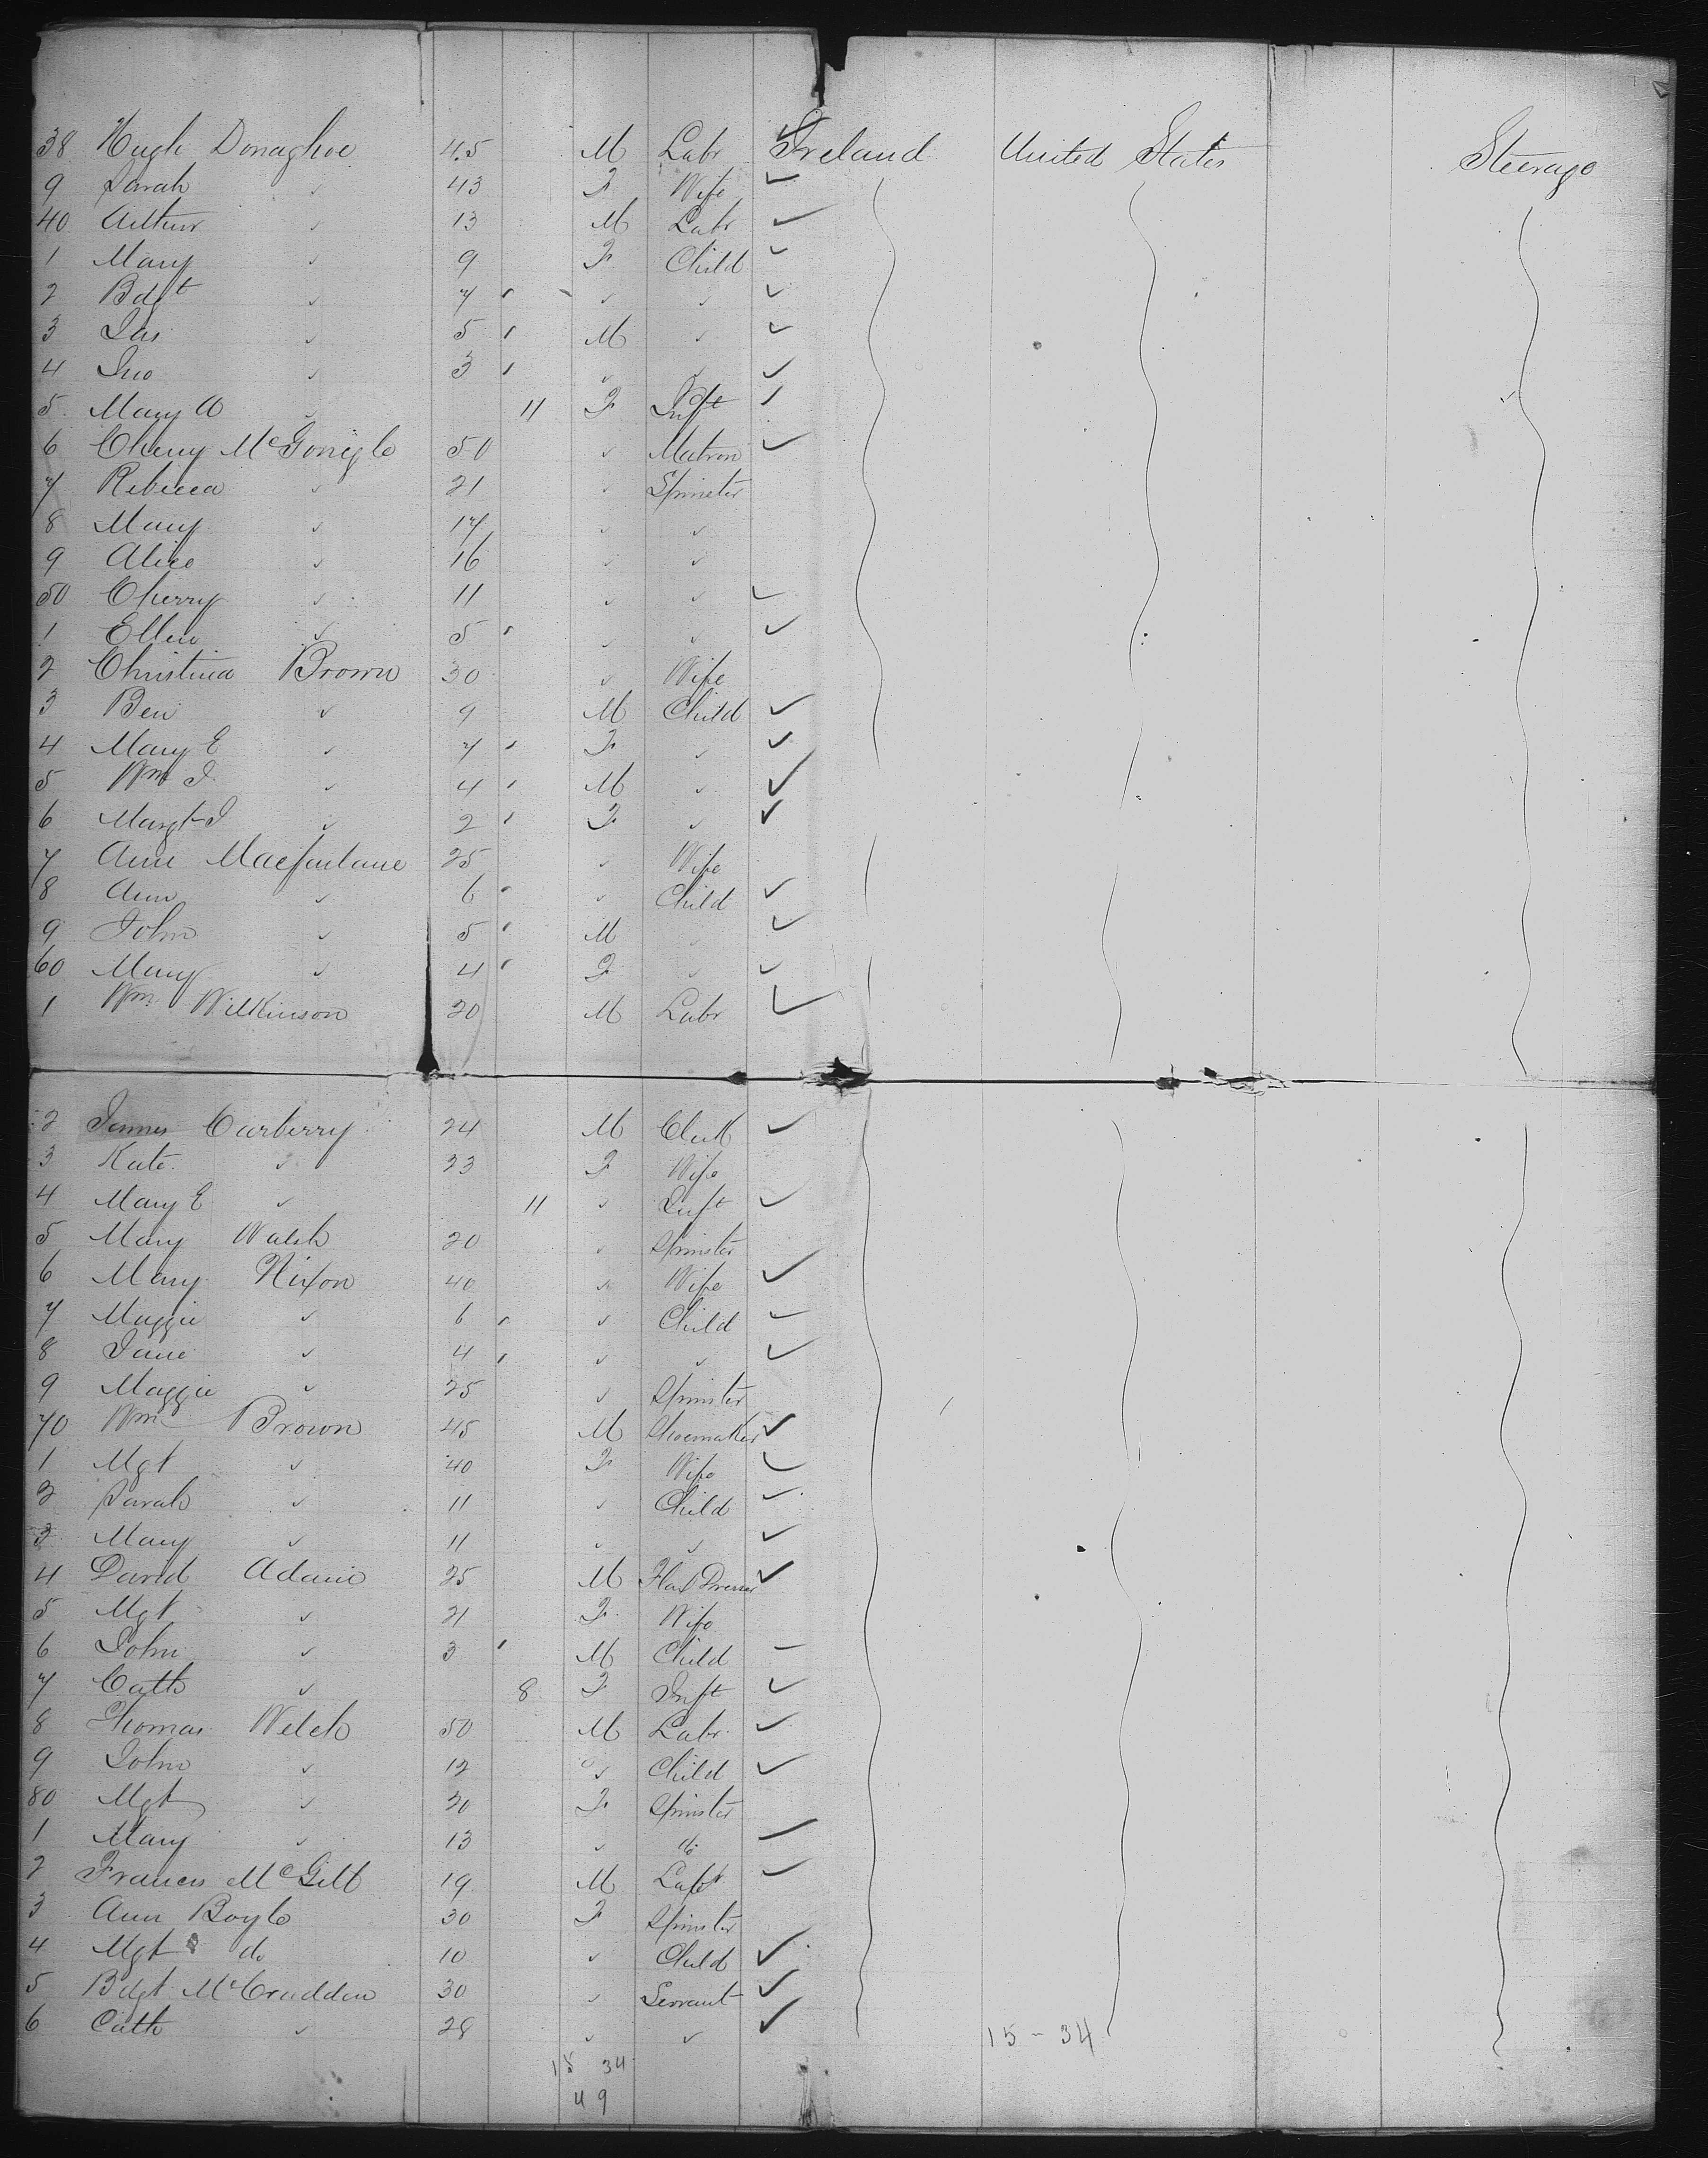 38 Hugh Donaghoe 45 M Labr Ireland United States Steerage
9 Sarah " 43 F Wife
40 Arthur " 13 M Labr
1 Mary " 9 F Child
2 Bdgt " 7 " "
3 Jas " 5 M "
4 Jno " 3 " "
5 Mary A " 11 F Inft
6 Cherry McGonigle 50 " Matron
7 Rebecca " 21 " Spinster
8 Mary " 17 " "
9 Alice " 16 " "
50 Cherry " 11 " "
1 Ellen " 5 " "
2 Christina Brown 30 " Wife
3 Ben " 9 M Child
4 Mary E " 7 F "
5 Wm J " 4 M "
6 Margt J " 2 F "
7 Ann Macfarlane 25 " Wife
8 Ann " 6 " Child
9 John " 5 M "
60 Mary " 4 F "
1 Wm Wilkinson 20 M Labr
2 James Carberry 24 M Clerk
3 Kate " 23 F Wife
4 Mary E " 11 " Inft
5 Mary Walsh 20 " Spinster
6 Mary Nixon 40 " Wife
7 Maggie " 6 " Child
8 Jane " 4 " "
9 Maggie " 25 " Spinster
70 Wm Brown 45 M Shoemaker
1 Mgt " 40 F Wife
2 Sarah " 11 " Child
3 Mary " 11 " "
4 David Adam 25 M Flax Dresser
5 Mgt " 21 F Wife
6 John " 3 M Child
7 Cath " 8 F Inft
8 Thomas Welch 50 M Labr
9 John " 12 " Child
80 Mgt " 20 F Spinster
1 Mary " 13 " do
2 Francis McGill 19 M Labr
3 Ann Boyle 30 F Spinster
4 Mgt do 10 " Child
5 Bdgt McCrudden 30 " Servant
6 Cath " 28 " "
15 - 34
15 34
49